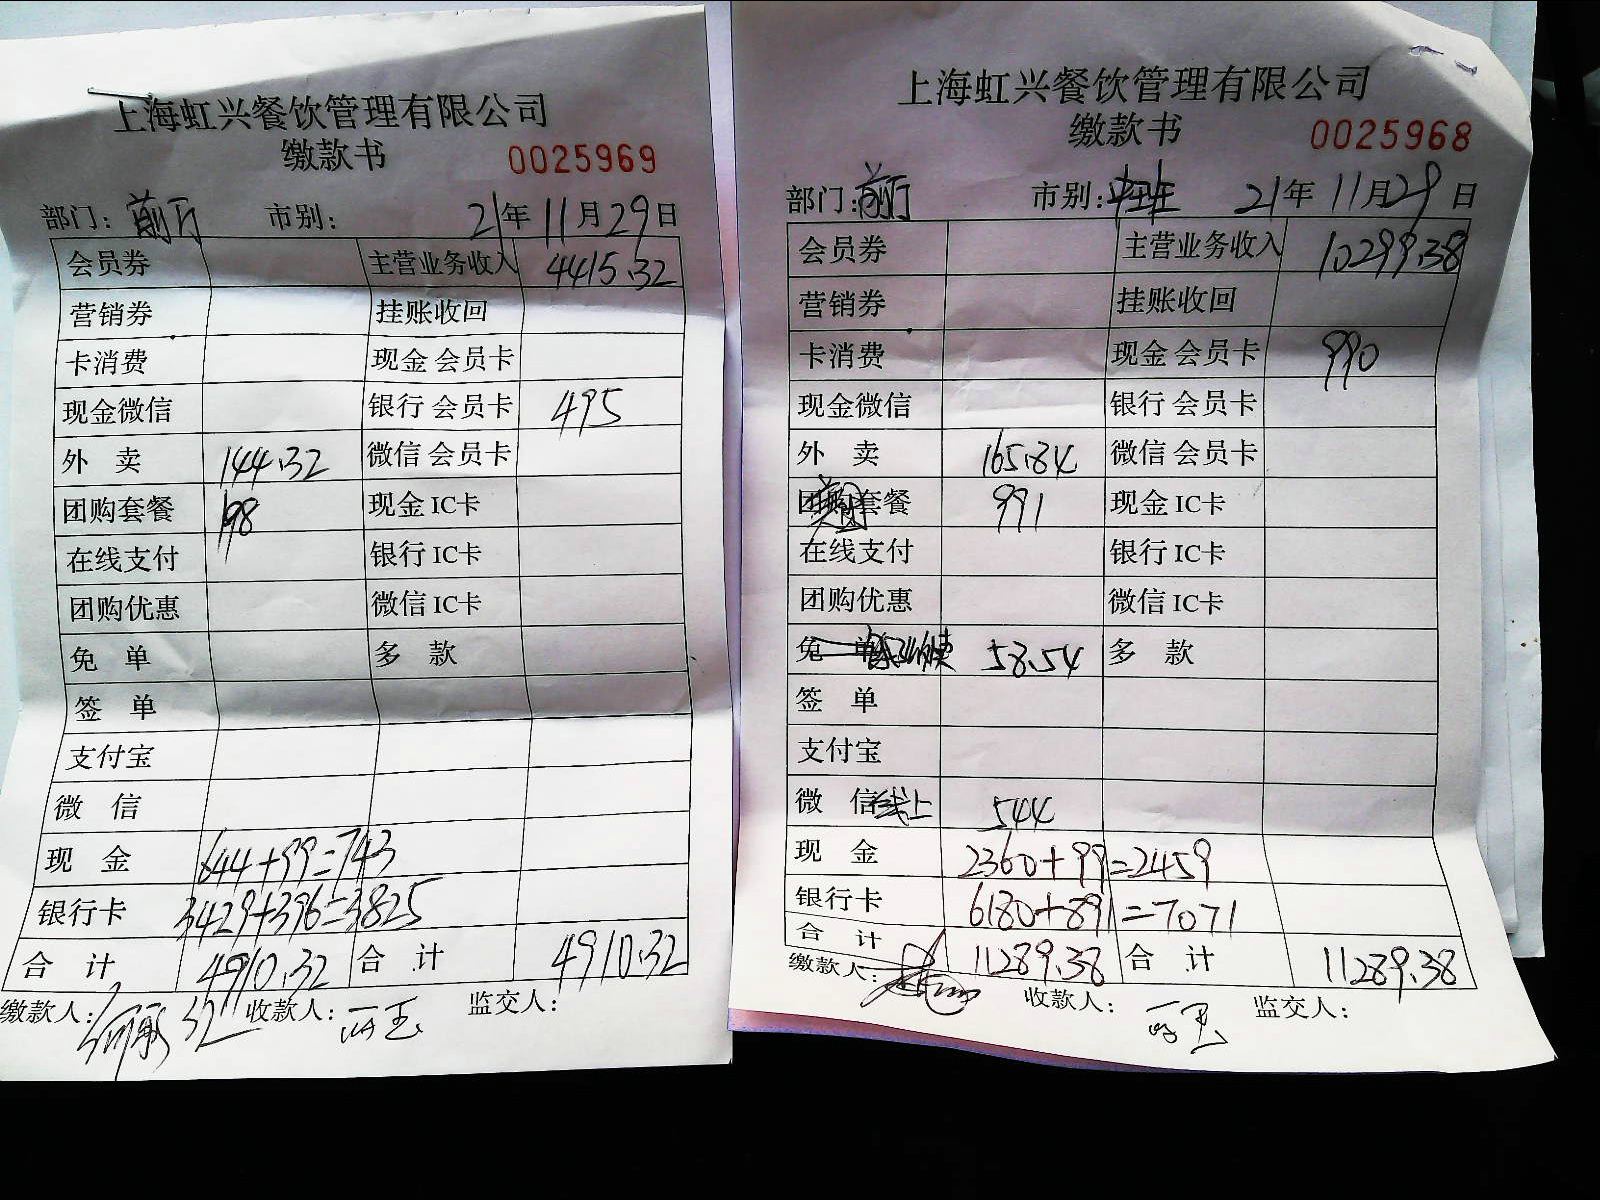 上海虹兴餐饮管理有限公司
缴款书 0025969
部门: 前厅 市别: 21年 11月29日
会员券 主营业务收入 4415.32
营销券 挂账收回
卡消费 现金 会员卡
现金微信 银行 会员卡 495
外 卖 144.32 微信 会员卡
团购套餐 198 现金 IC卡
在线支付 银行 IC卡
团购优惠 微信 IC卡
免 单 多 款
签 单
支付宝
微 信
现 金 644+99=743
银行卡 3429+396=3825
合 计 4910.32 合 计 4910.32
缴款人: 收款人: 监交人:
上海虹兴餐饮管理有限公司
缴款书 0025968
部门: 前厅 市别: 中班 21年 11月29日
会员券 主营业务收入 10299.38
营销券 挂账收回
卡消费 现金 会员卡 990
现金微信 银行 会员卡
外 卖 165.84 微信 会员卡
团购套餐 美团 991 现金 IC卡
在线支付 银行 IC卡
团购优惠 微信 IC卡
免 单 58.54 多 款
签 单
支付宝
微 信 线上 544
现 金 2360+99=2459
银行卡 6180+891=7071
合 计 11289.38 合 计 11289.38
缴款人: 收款人: 监交人: